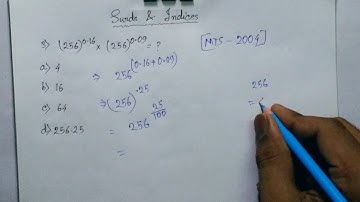 Surds & Indices
3) (256)^0.16 × (256)^0.09 = ?
[MTS - 2004]
a) 4
⇒ 256^(0.16+0.09)
b) 16
⇒ (256)^.25
c) 64
d) 256.25
= 256^25/100
=
256
=